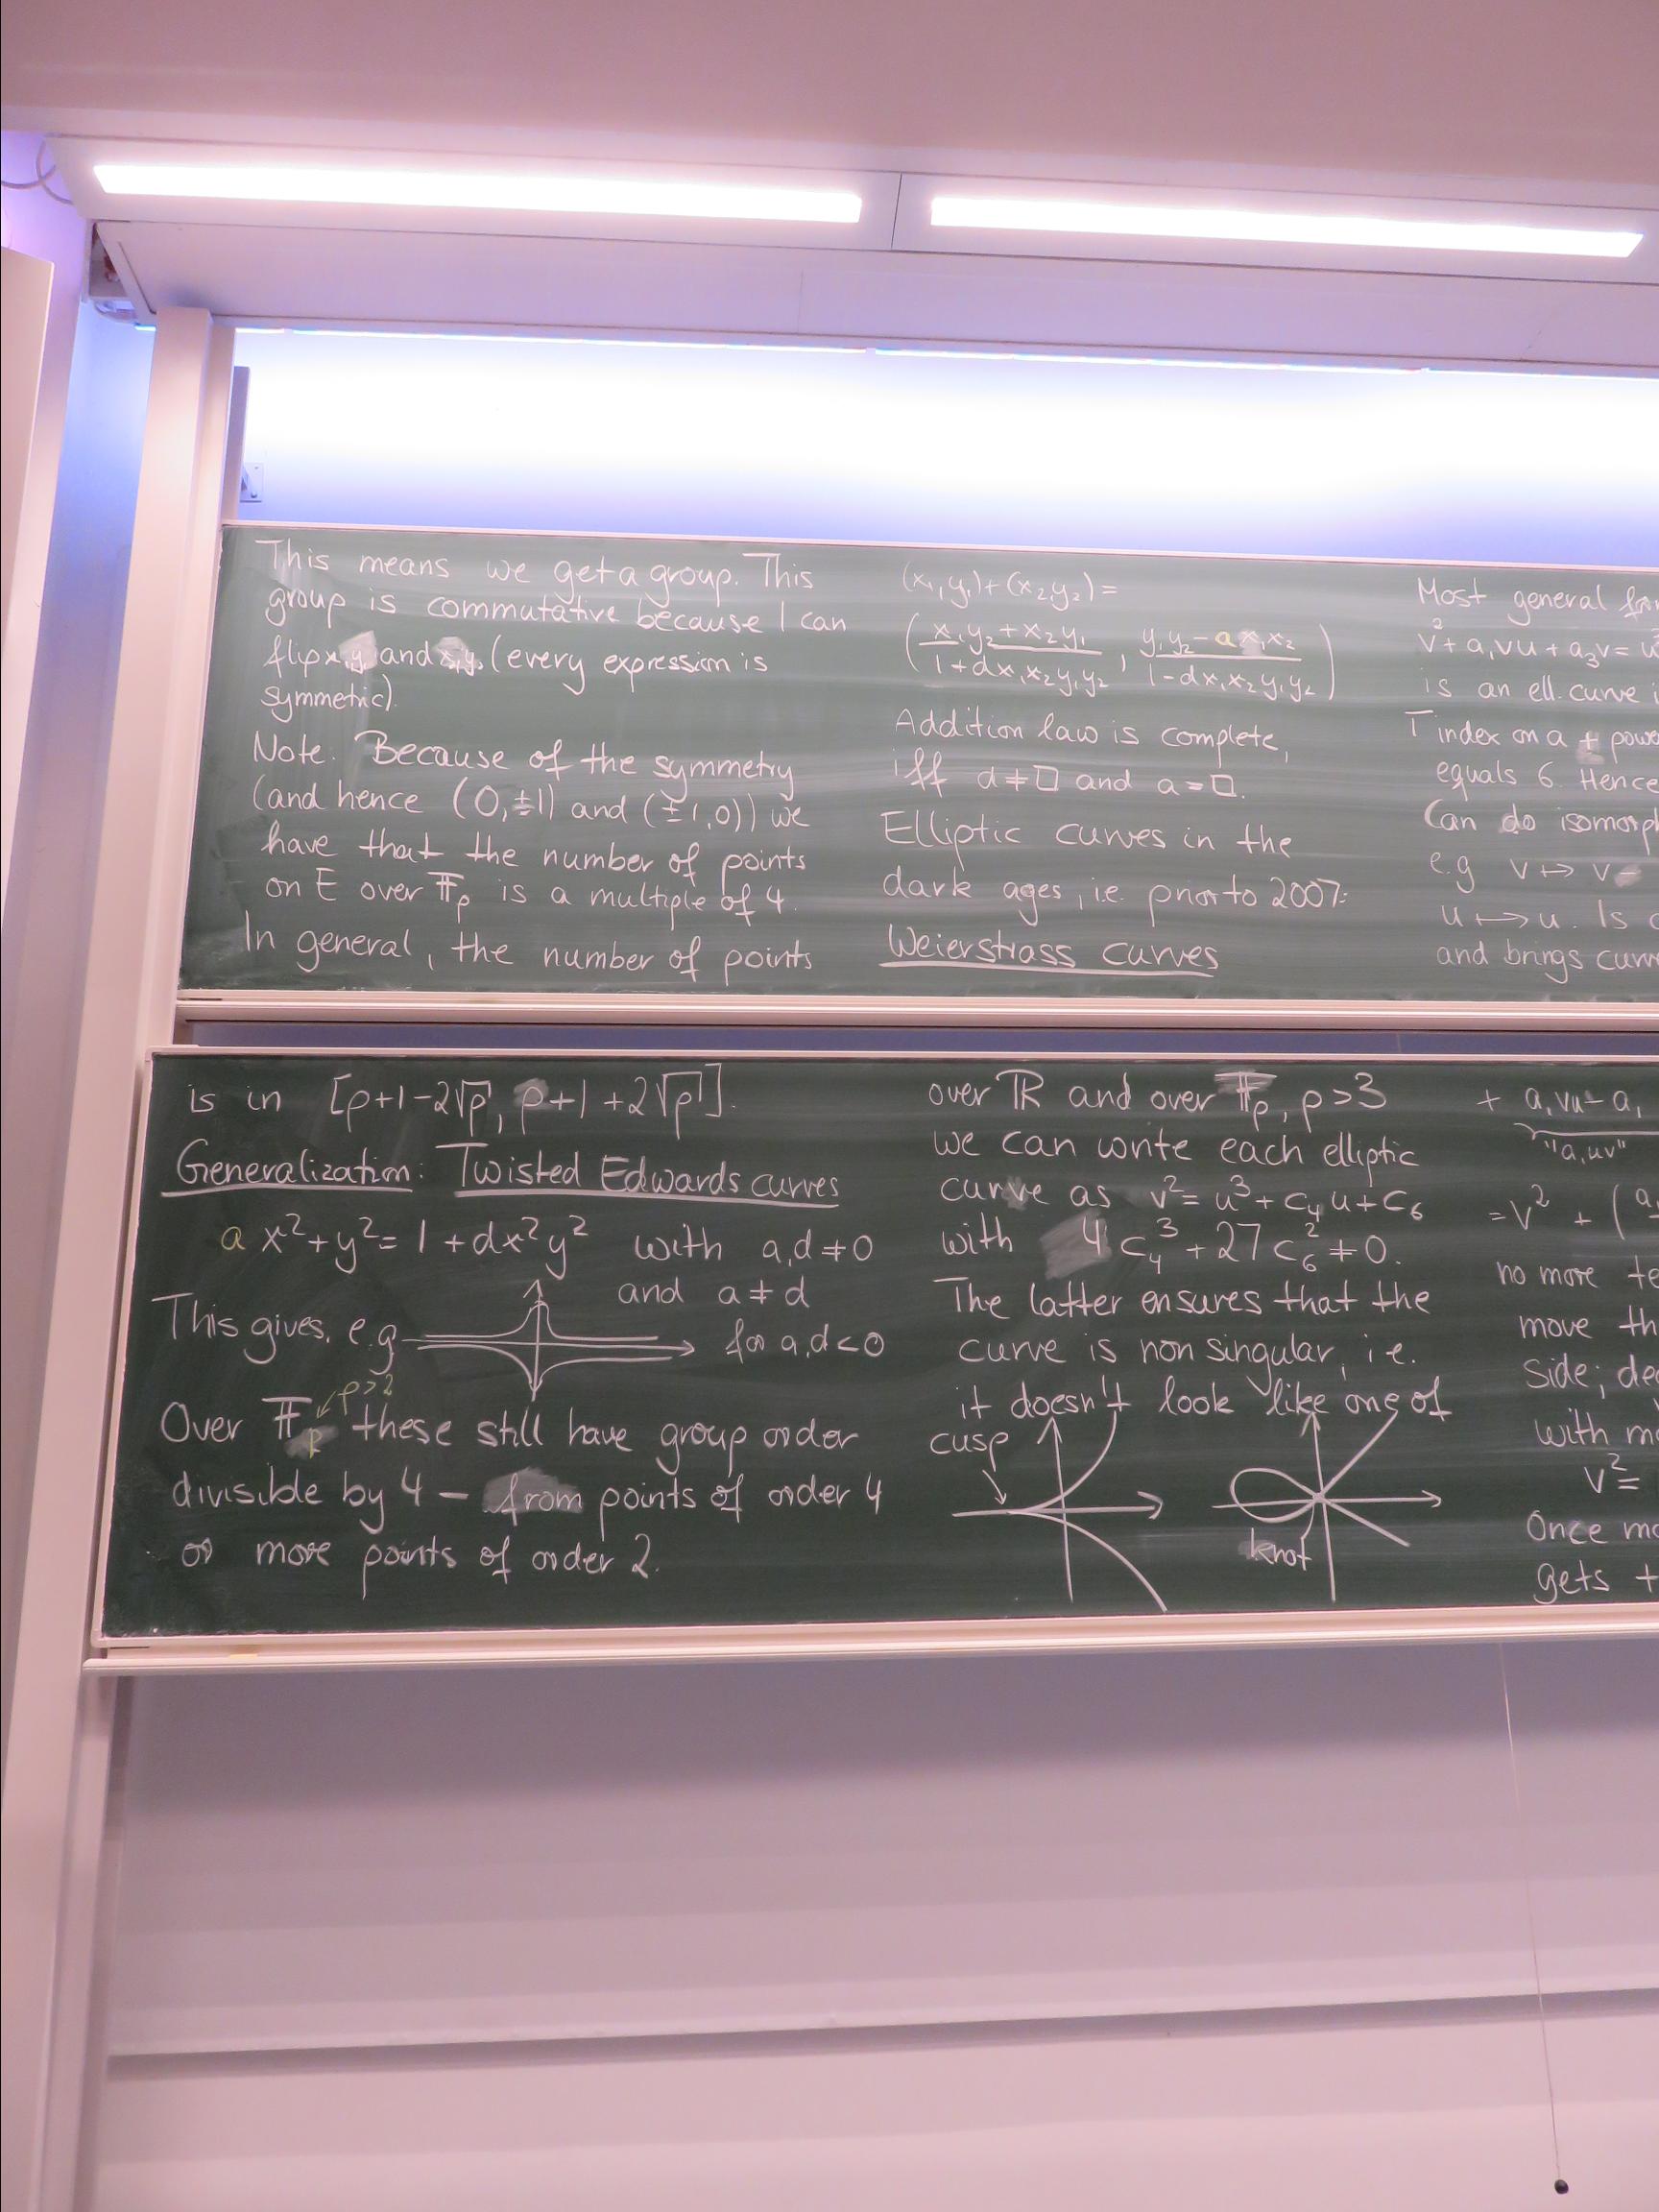 This means we get a group. This
group is commutative because I can
flip x, y, and x, y, (every expression is
symmetric).
Note: Because of the symmetry
(and hence (0,±1) and (±1,0)) we
have that the number of points
on E over 𝔽ₚ is a multiple of 4.
In general, the number of points
is in [p+1-2√p, p+1+2√p].
Generalization: Twisted Edwards curves
a x²+y²=1+dx²y² with a,d≠0
and a≠d
This gives, e.g for a,d<0
p>2
Over 𝔽ₚ these still have group order
divisible by 4 – from points of order 4
or more points of order 2.
(x₁,y₁)+(x₂,y₂)=
((x₁y₂+x₂y₁)/(1+dx₁x₂y₁y₂), (y₁y₂-ax₁x₂)/(1-dx₁x₂y₁y₂))
Addition law is complete,
iff d≠□ and a=□.
Elliptic curves in the
dark ages, i.e. prior to 2007:
Weierstrass curves
over ℝ and over 𝔽ₚ, p>3
we can write each elliptic
curve as v²=u³+c₄u+c₆
with 4c₄³+27c₆²≠0.
The latter ensures that the
curve is non singular, i.e.
it doesn't look like one of
cusp
knot
Most general
v²+a₁vu+a₃v=
is an ell. curve
index on a + 
equals 6. Hence
Can do
e.g v↦v-
u↦u. Is
and brings
+ a₁vu-a₁
"a₁uv"
=v²+(
no more
move
side;
with
v²=
Once
gets